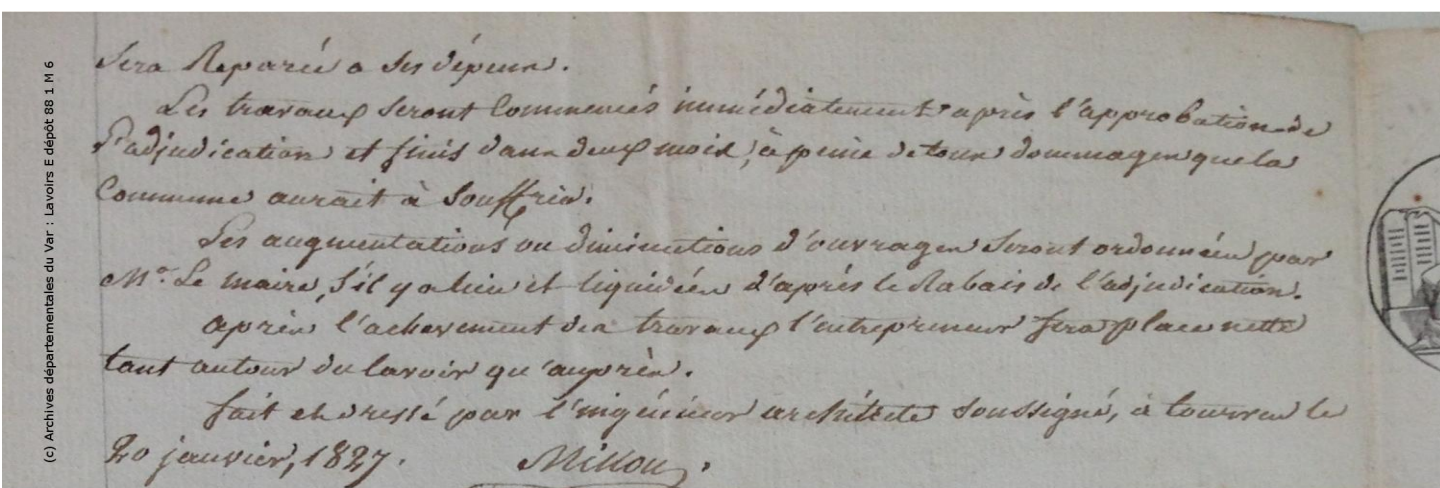 (c) Archives départementales du Var : Lavoirs E dépôt 88 1 M 6
sera Reparée a ses dépens.
Les travaux seront Commencés immédiatement après l'approbation de
l'adjudication et finis dans deux mois, à peine de tous dommages que la
Commune aurait à souffrir.
Les augmentations ou diminutions d'ouvrages seront ordonnées par
Mr. Le maire, s'il y a lieu et liquidées d'après le Rabais de l'adjudication.
après l'achevement des travaux l'entrepreneur fera place nette
tant autour du lavoir qu'auprès.
fait et dressé par l'ingénieur architecte soussigné, à tourves le
20 janvier, 1827.